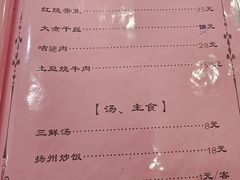 红烧带鱼 35元
大煮干丝 元
咕咾肉 28元
土豆烧牛肉 元
【汤、主食】
三鲜汤 8元
扬州炒饭 18元
1元/客